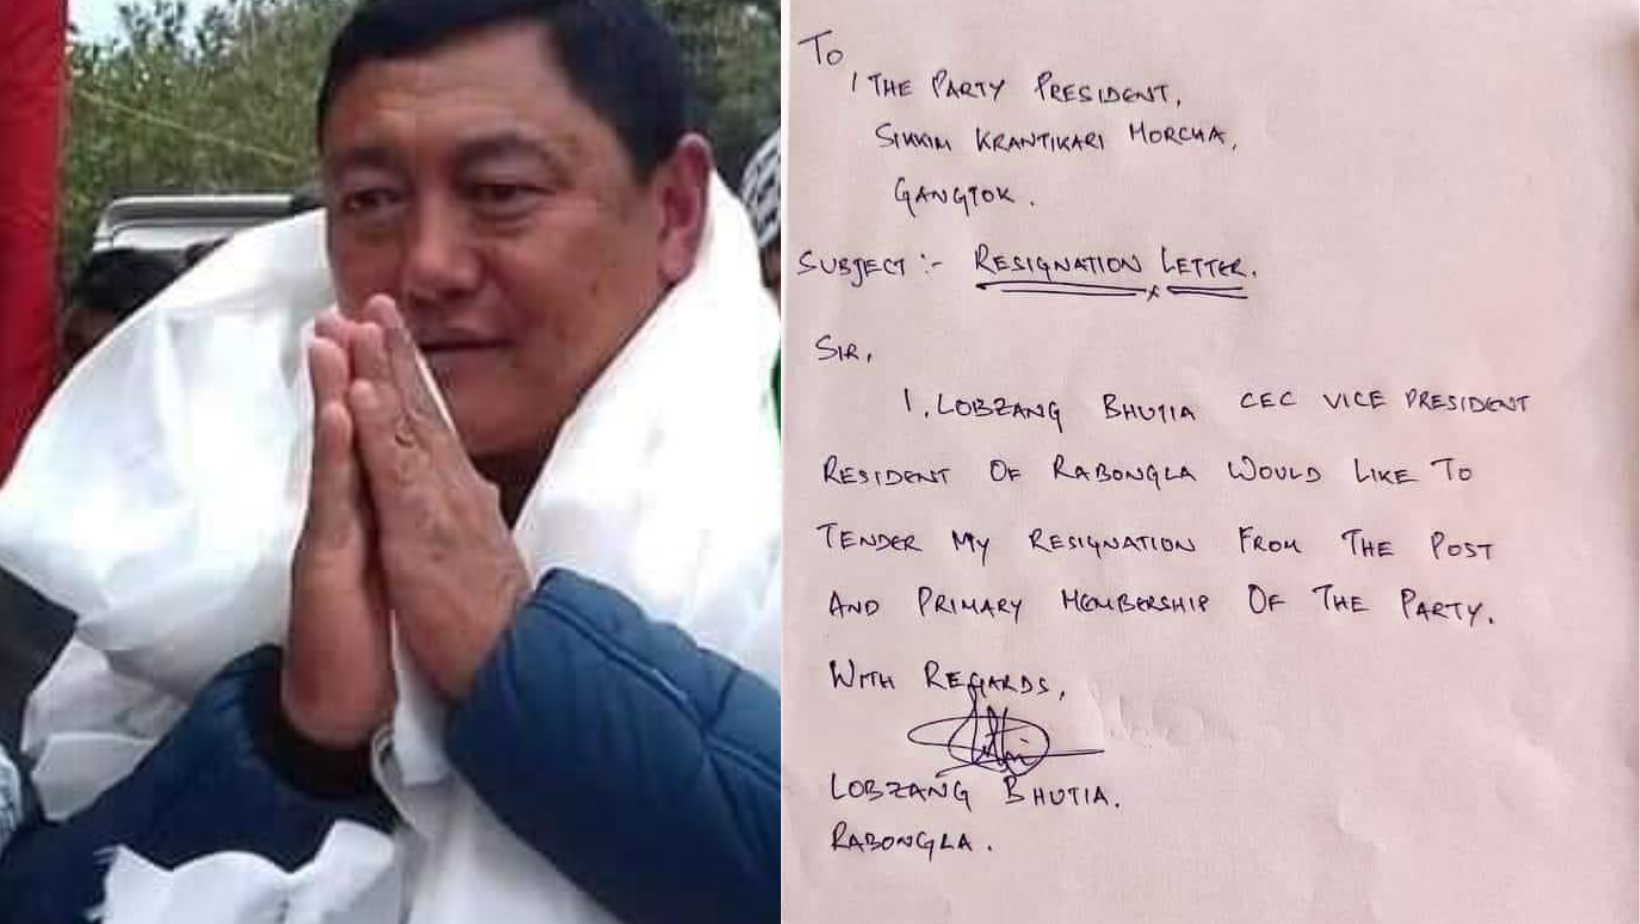 To
THE PARTY PRESIDENT,
SIKKIM KRANTIKARI MORCHA,
GANGTOK.
SUBJECT :- RESIGNATION LETTER.
SIR,
I, LOBZANG BHUTIA CEC VICE PRESIDENT
RESIDENT OF RABONGLA WOULD LIKE TO
TENDER MY RESIGNATION FROM THE POST
AND PRIMARY MEMBERSHIP OF THE PARTY.
WITH REGARDS,
LOBZANG BHUTIA.
RABONGLA.